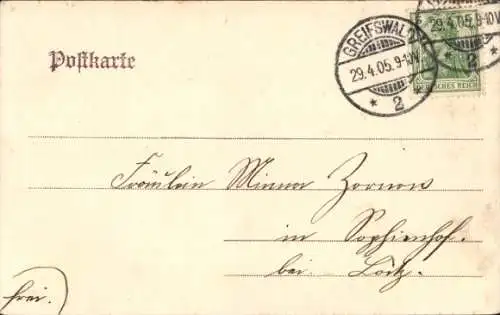 Postkarte
GREIFSWALD
29.4.05.9-10V.
* 2 *
29.4.05.9-10V
2 *
DEUTSCHES REICH
Fräulein Minna Zornow
in Sophienhof.
bei Loitz.
frei.